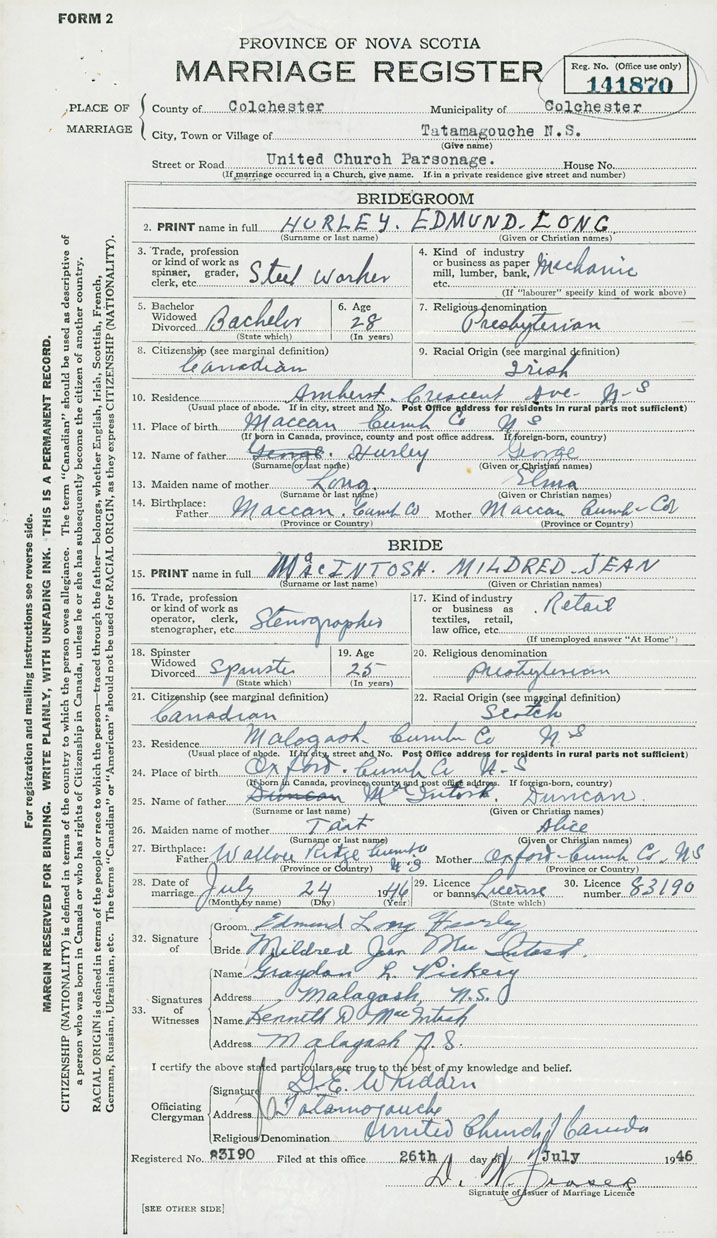 FORM 2
PROVINCE OF NOVA SCOTIA
MARRIAGE REGISTER
Reg. No. (Office use only)
141870
PLACE OF MARRIAGE
County of Colchester Municipality of Colchester
City, Town or Village of Tatamagouche N.S.
(Give name)
Street or Road United Church Parsonage. House No.
(If marriage occurred in a Church, give name. If in a private residence give street and number)
BRIDEGROOM
2. PRINT name in full HURLEY. EDMUND. LONG
(Surname or last name) (Given or Christian names)
3. Trade, profession or kind of work as spinner, grader, clerk, etc. Steel Worker
4. Kind of industry or business as paper mill, lumber, bank, etc. Mechanic
(If "labourer" specify kind of work above)
5. Bachelor Widowed Divorced Bachelor
(State which)
6. Age 28
(In years)
7. Religious denomination
Presbyterian
8. Citizenship (see marginal definition)
Canadian
9. Racial Origin (see marginal definition)
Irish
10. Residence Amherst. Crescent Ave. N-S
(Usual place of abode. If in city, street and No. Post Office address for residents in rural parts not sufficient)
11. Place of birth Maccan Cumb Co N S
(If born in Canada, province, county and post office address. If foreign-born, country)
12. Name of father George Hurley George
(Surname or last name) (Given or Christian names)
13. Maiden name of mother Long Elma
(Surname or last name) (Given or Christian names)
14. Birthplace: Father Maccan. Cumb Co Mother Maccan Cumb-Co
(Province or Country) (Province or Country)
BRIDE
15. PRINT name in full MacINTOSH. MILDRED. JEAN
(Surname or last name) (Given or Christian names)
16. Trade, profession or kind of work as operator, clerk, stenographer, etc. Stenographer
17. Kind of industry or business as textiles, retail, law office, etc. Retail
(If unemployed answer "At Home")
18. Spinster Widowed Divorced Spinster
(State which)
19. Age 25
(In years)
20. Religious denomination
Presbyterian
21. Citizenship (see marginal definition)
Canadian
22. Racial Origin (see marginal definition)
Scotch
23. Residence Malagash. Cumb Co N S
(Usual place of abode. If in city, street and No. Post Office address for residents in rural parts not sufficient)
24. Place of birth Oxford. Cumb Co N-S
(If born in Canada, province, county and post office address. If foreign-born, country)
25. Name of father Duncan McIntosh. Duncan.
(Surname or last name) (Given or Christian names)
26. Maiden name of mother Tait Alice
(Surname or last name) (Given or Christian names)
27. Birthplace: Father Wallace Ridge Cumb Co N S Mother Oxford-Cumb Co. NS
(Province or Country) (Province or Country)
28. Date of marriage July 24 1946
(Month by name) (Day) (Year)
29. Licence or banns License
(State which)
30. Licence number 83190
32. Signature of
Groom Edmund Long Hurley
Bride Mildred Jean MacIntosh.
33. Signatures of Witnesses
Name Graydon L. Vickery
Address Malagash, N.S.
Name Kenneth D MacIntosh
Address Malagash N.S.
I certify the above stated particulars are true to the best of my knowledge and belief.
Officiating Clergyman
Signature G.E. Whidden
Address Tatamagouche
Religious Denomination United Church of Canada
Registered No. 83190 Filed at this office 26th day of July 1946
D. N. Fraser
Signature of Issuer of Marriage Licence
[SEE OTHER SIDE]
For registration and mailing instructions see reverse side.
MARGIN RESERVED FOR BINDING. WRITE PLAINLY, WITH UNFADING INK. THIS IS A PERMANENT RECORD.
CITIZENSHIP (NATIONALITY) is defined in terms of the country to which the person owes allegiance. The term "Canadian" should be used as descriptive of
a person who was born in Canada or who has rights of Citizenship in Canada, unless he or she has subsequently become the citizen of another country.
RACIAL ORIGIN is defined in terms of the people or race to which the person—traced through the father—belongs, whether English, Irish, Scottish, French,
German, Russian, Ukrainian, etc. The terms "Canadian" or "American" should not be used for RACIAL ORIGIN, as they express CITIZENSHIP (NATIONALITY).